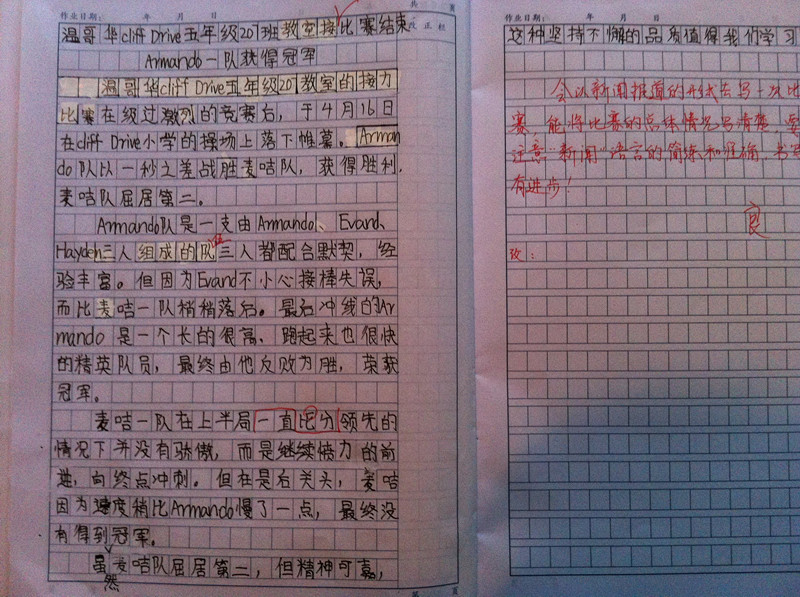 作业日期： 年 月 日
共 页
温哥华cliff Drive五年级207班教室接比赛结束
改正栏
Armando一队获得冠军
温哥华cliff Drive五年级207教室的接力
比赛在级过激烈的竞赛后，于4月16日
在cliff Drive小学的操场上落下帷幕。Arman
do队以一秒之差战胜麦咭队，获得胜利，
麦咭队屈居第二。
Armando队是一支由Armando、Evand、
Hayden三人组成的队三人都配合默契，经
验丰富。但因为Evand不小心接棒失误，
而比麦咭一队稍稍落后。最后冲线的Ar
mando是一个长的很高、跑起来也很快
的精英队员，最终由他反败为胜，荣获
冠军。
麦咭一队在上半局一直比分领先的
情况下并没有骄傲，而是继续倍力的前
进，向终点冲刺。但在最后关头，麦咭
因为速度稍比Armando慢了一点，最终没
有得到冠军。
虽然麦咭队屈居第二，但精神可嘉，
第 页
作业日期： 年 月 日
这种坚持不懈的品质值得我们学习
会以新闻报道的形式去写一次比
赛，能将比赛的总体情况写清楚，要
注意“新闻”语言的简练和准确，书写
有进步！
良
改：